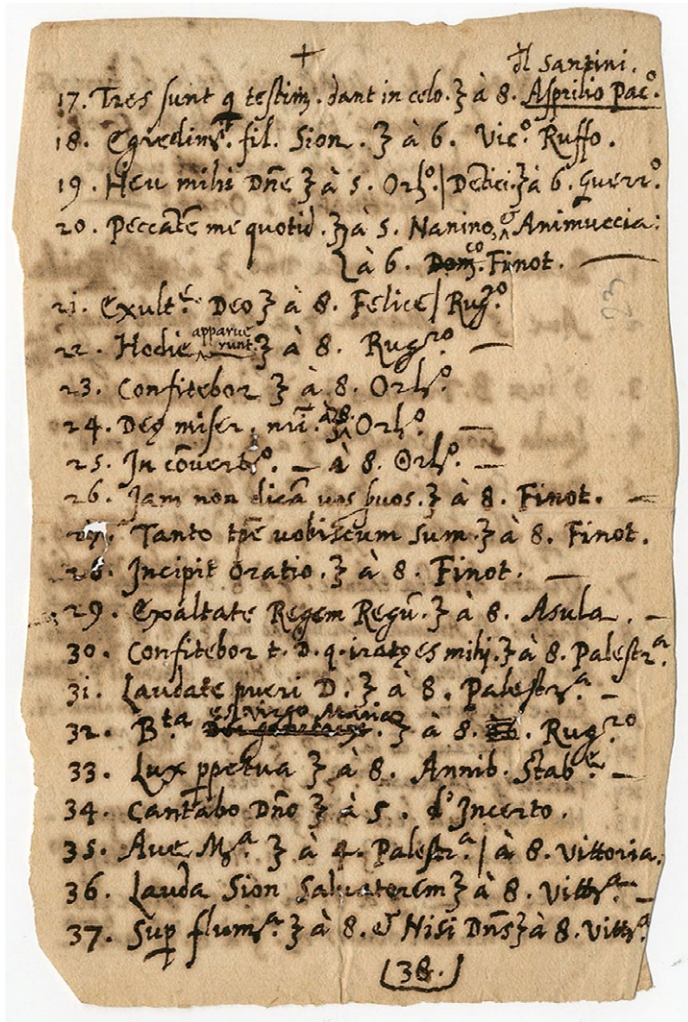 + dl Santini.
17. Tres sunt q testim. dant in celo. à 8. Asprilio Pac.º
18. Egredim.ⁱ fil. Sion. à 6. Vic.º Ruffo.
19. Heu mihi Dñe à 5. Orl.º | à 6. Guerr.º
20. Peccatē me quotid. à 5. Nanino, et Animuccia:
à 6. Dom.co Finot.
21. Exult.e Deo à 8. Felice | Rug.ro
22. Hodie apparuerunt à 8. Rug.ro
23. Confitebor à 8. Orl.º
24. Deq miser. nr̄i. à 8. Orl.º
25. In cōvert.º à 8. Orl.º
26. Jam non dicā vos à 8. Finot.
27. Tanto tp̄e vobiscum sum. à 8. Finot.
28. Incipit oratio. à 8. Finot.
29. Exaltate Regem Regū. à 8. Asula.
30. Confitebor t. D. q. iratq es mihj. à 8. Palestr.a
31. Laudate pueri D. à 8. Palestr.a
32. B.ta es Virgo Maria à 8. Rug.ro
33. Lux ꝑpetua à 8. Annib. Stab.e
34. Cantabo Dño à 5. d'Incerto.
35. Ave M.a à 4. Palestr.a | à 8. Vittoria.
36. Lauda Sion Salvatorem à 8. Vitt.a
37. Suꝑ flum.a à 8. et Nisi Dñs à 8. Vitt.a
(38.)